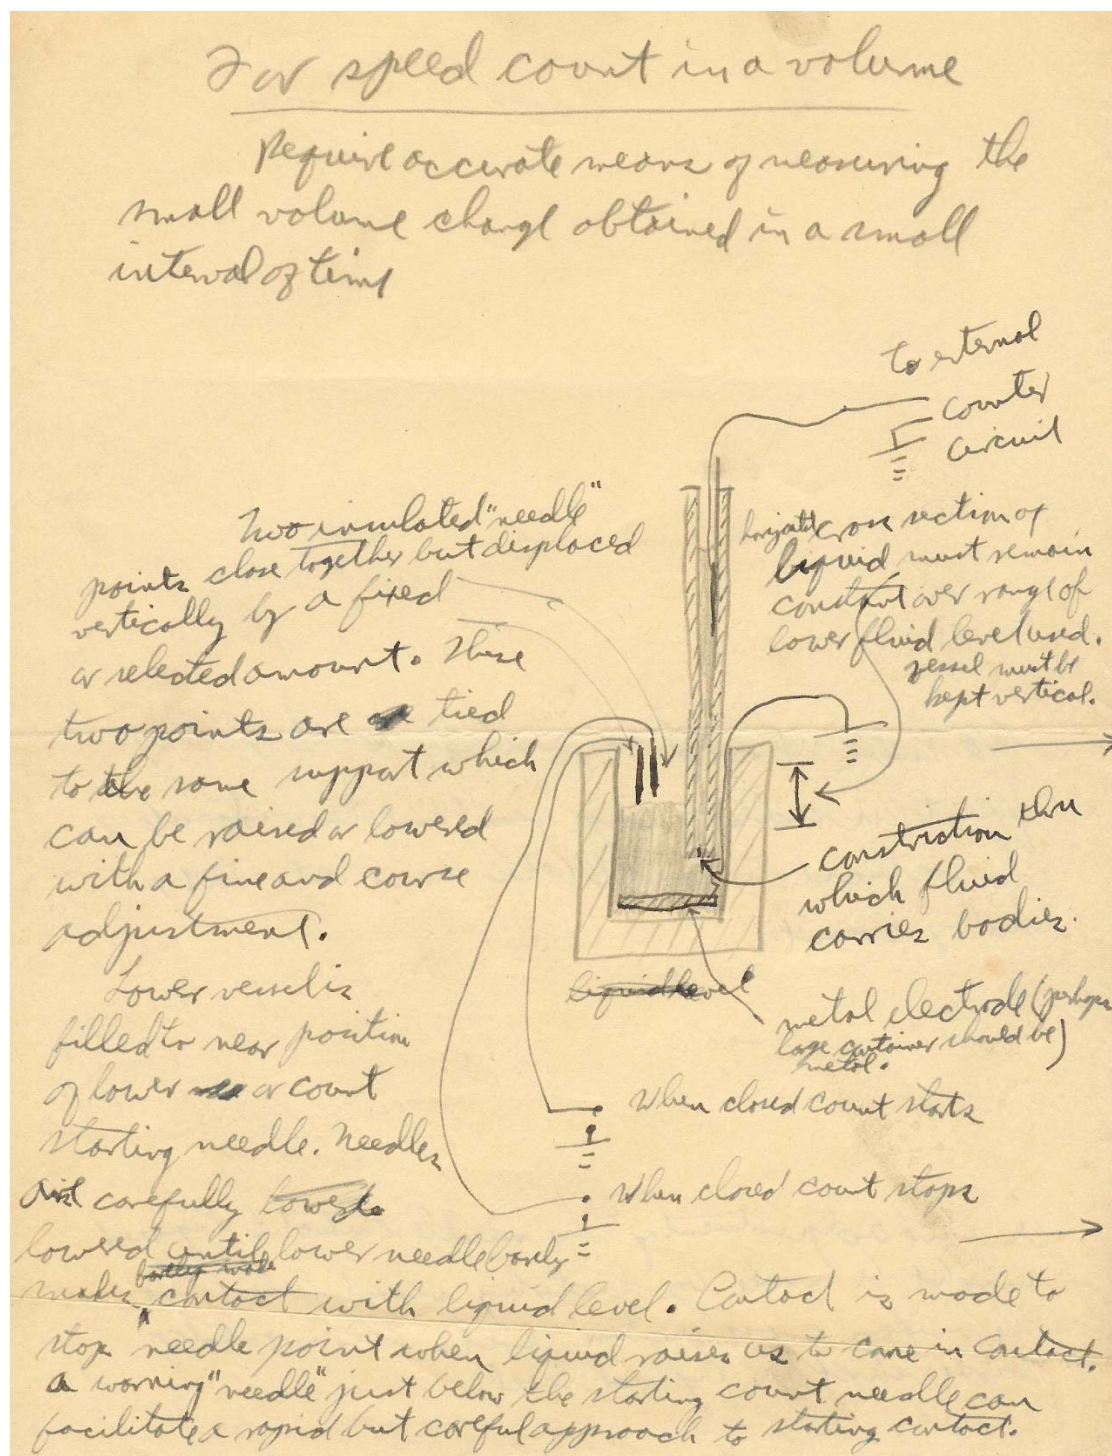 For speed count in a volume
Require accurate means of measuring the
small volume change obtained in a small
interval of time
to external
counter
circuit
Two insulated "needle"
points close together but displaced
vertically by a fixed
or selected amount. These
two points are tied
to the same support which
can be raised or lowered
with a fine and course
adjustment.
Lower vessel is
filled to near position
of lower or count
starting needle. Needles
are carefully lowered
lowered until lower needle barely
barely make
makes contact with liquid level. Contact is made to
stop needle point when liquid raises as to come in contact.
a warning "needle" just below the starting count needle can
facilitate a rapid but careful approach to starting contact.
horizontal cross section of
liquid must remain
constant over range of
lower fluid level used.
vessel must be
kept vertical.
constriction thru
which fluid
carries bodies.
liquid level
metal electrode (perhaps
large container should be)
metal.
When closed count starts
When closed count stops